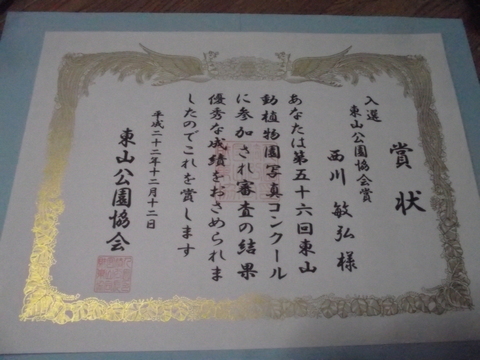 賞状
入選
東山公園協会賞
西川敏弘様
あなたは第五十六回東山
動植物園写真コンクール
に参加され審査の結果
優秀な成績をおさめられま
したのでこれを賞します
平成二十二年十二月十二日
東山公園協会